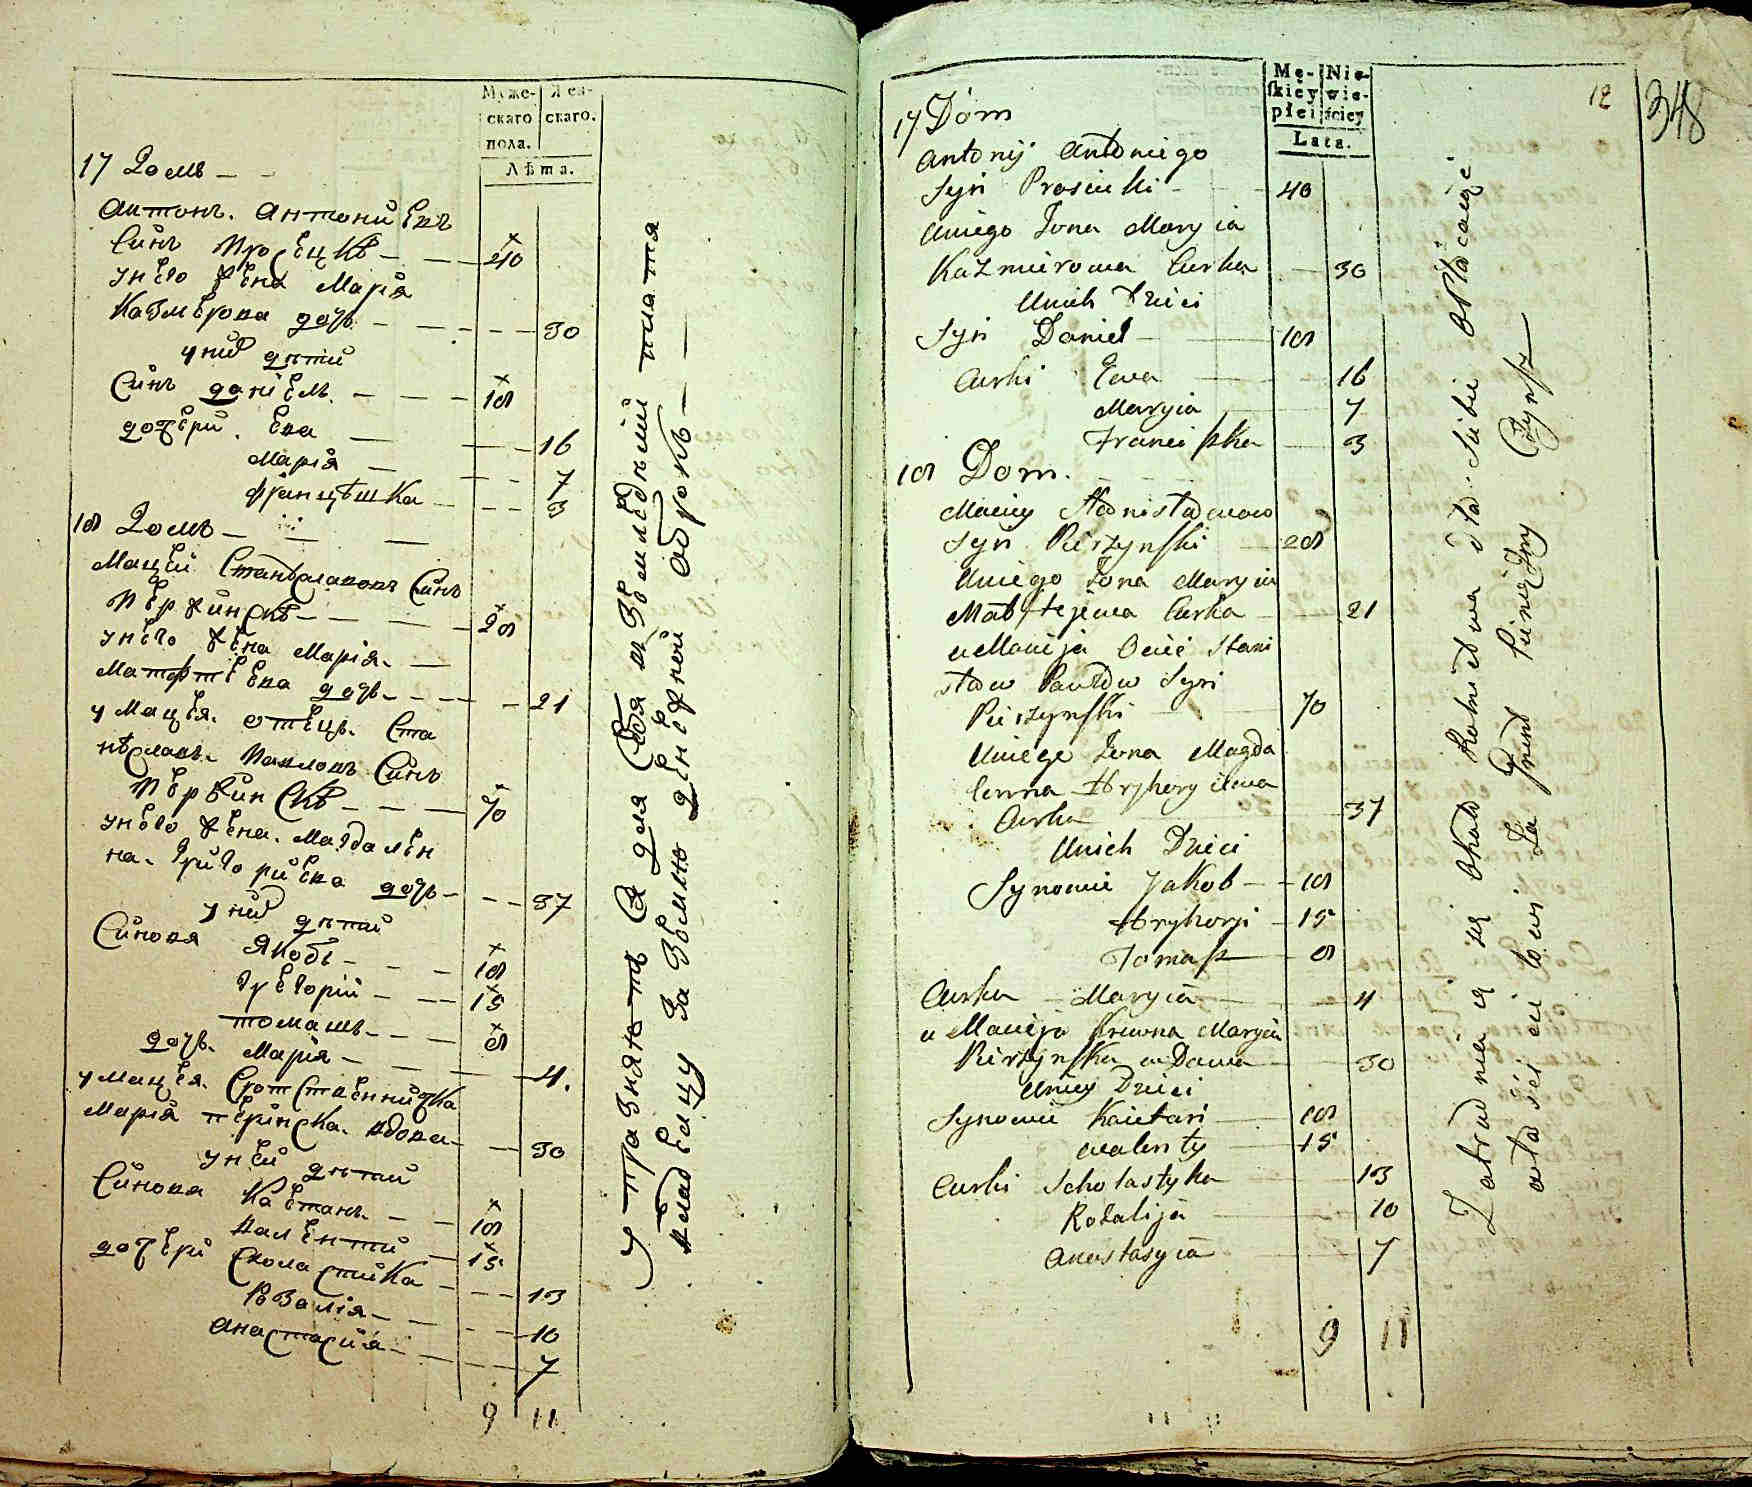 Муже-
скаго
пола.
Жен-
скаго.
Лѣта.
17 Домъ
Антонъ Антониевъ
Синъ Просецкъ 40
унего жена Марія
Казмерова дочь 30
уних дѣти
Синъ Даніелъ 18
дочери Ева 16
Марія 7
Францѣшка 3
18 Домъ
Мацей Станѣславовъ Синъ
Пержинскъ 28
унего жена Марія
Матфтеева дочь 21
у Мацея отецъ Ста
нѣславъ Павловъ Синъ
Пержинскъ 70
унего жена Магдален
на Григориева дочь 37
уних дѣти
Синовя Якобъ 18
Грегорій 15
Томашъ 8
дочь Марія 4
у Мацея Сротственничка
Марія перинска вдова 30
уней дѣти
Синовя Каетанъ 18
Валенти 15
дочери Сколастика 13
Розалія 10
Анастасия 7
9 11
Упразняютъ Ся для Себя и Земледѣлій плата
владелцу За Землю денежной оброкъ
12
348
Mę-
skiey
płci
Nie-
wie-
ściey
Lata.
17 Dom
Antonij Antoniego
Syn Prosiecki 40
Uniego Żona Maryia
Kazmirowa Curka 30
Unich Dzieci
Syn Daniel 18
Curki Ewa 16
Maryia 7
Franciszka 3
18 Dom
Maciey Stanisławow
Syn Pierzynski 28
Uniego Żona Maryia
Mateejewa Curka 21
u Macieja Ociec Stani
sław Pawłow Syn
Pierzynski 70
Uniego Żona Magda
lenna Hryhoryiewa
Curka 37
Unich Dzieci
Synowie Jakob 18
Hryhory 15
Tomasz 8
Curka Maryia 4
u Macieja Krewna Maryia
Pierzynska wDowa 30
Uniey Dzieci
Synowie Kaietan 18
Walenty 15
Curki Scholastyka 13
Rozalija 10
Anastasyia 7
9 11
Zatrudniaią się Około Rolnictwa dla Siebie Opłacaiąc
własciciełowi Za Grunt Pieniężny Czynsz